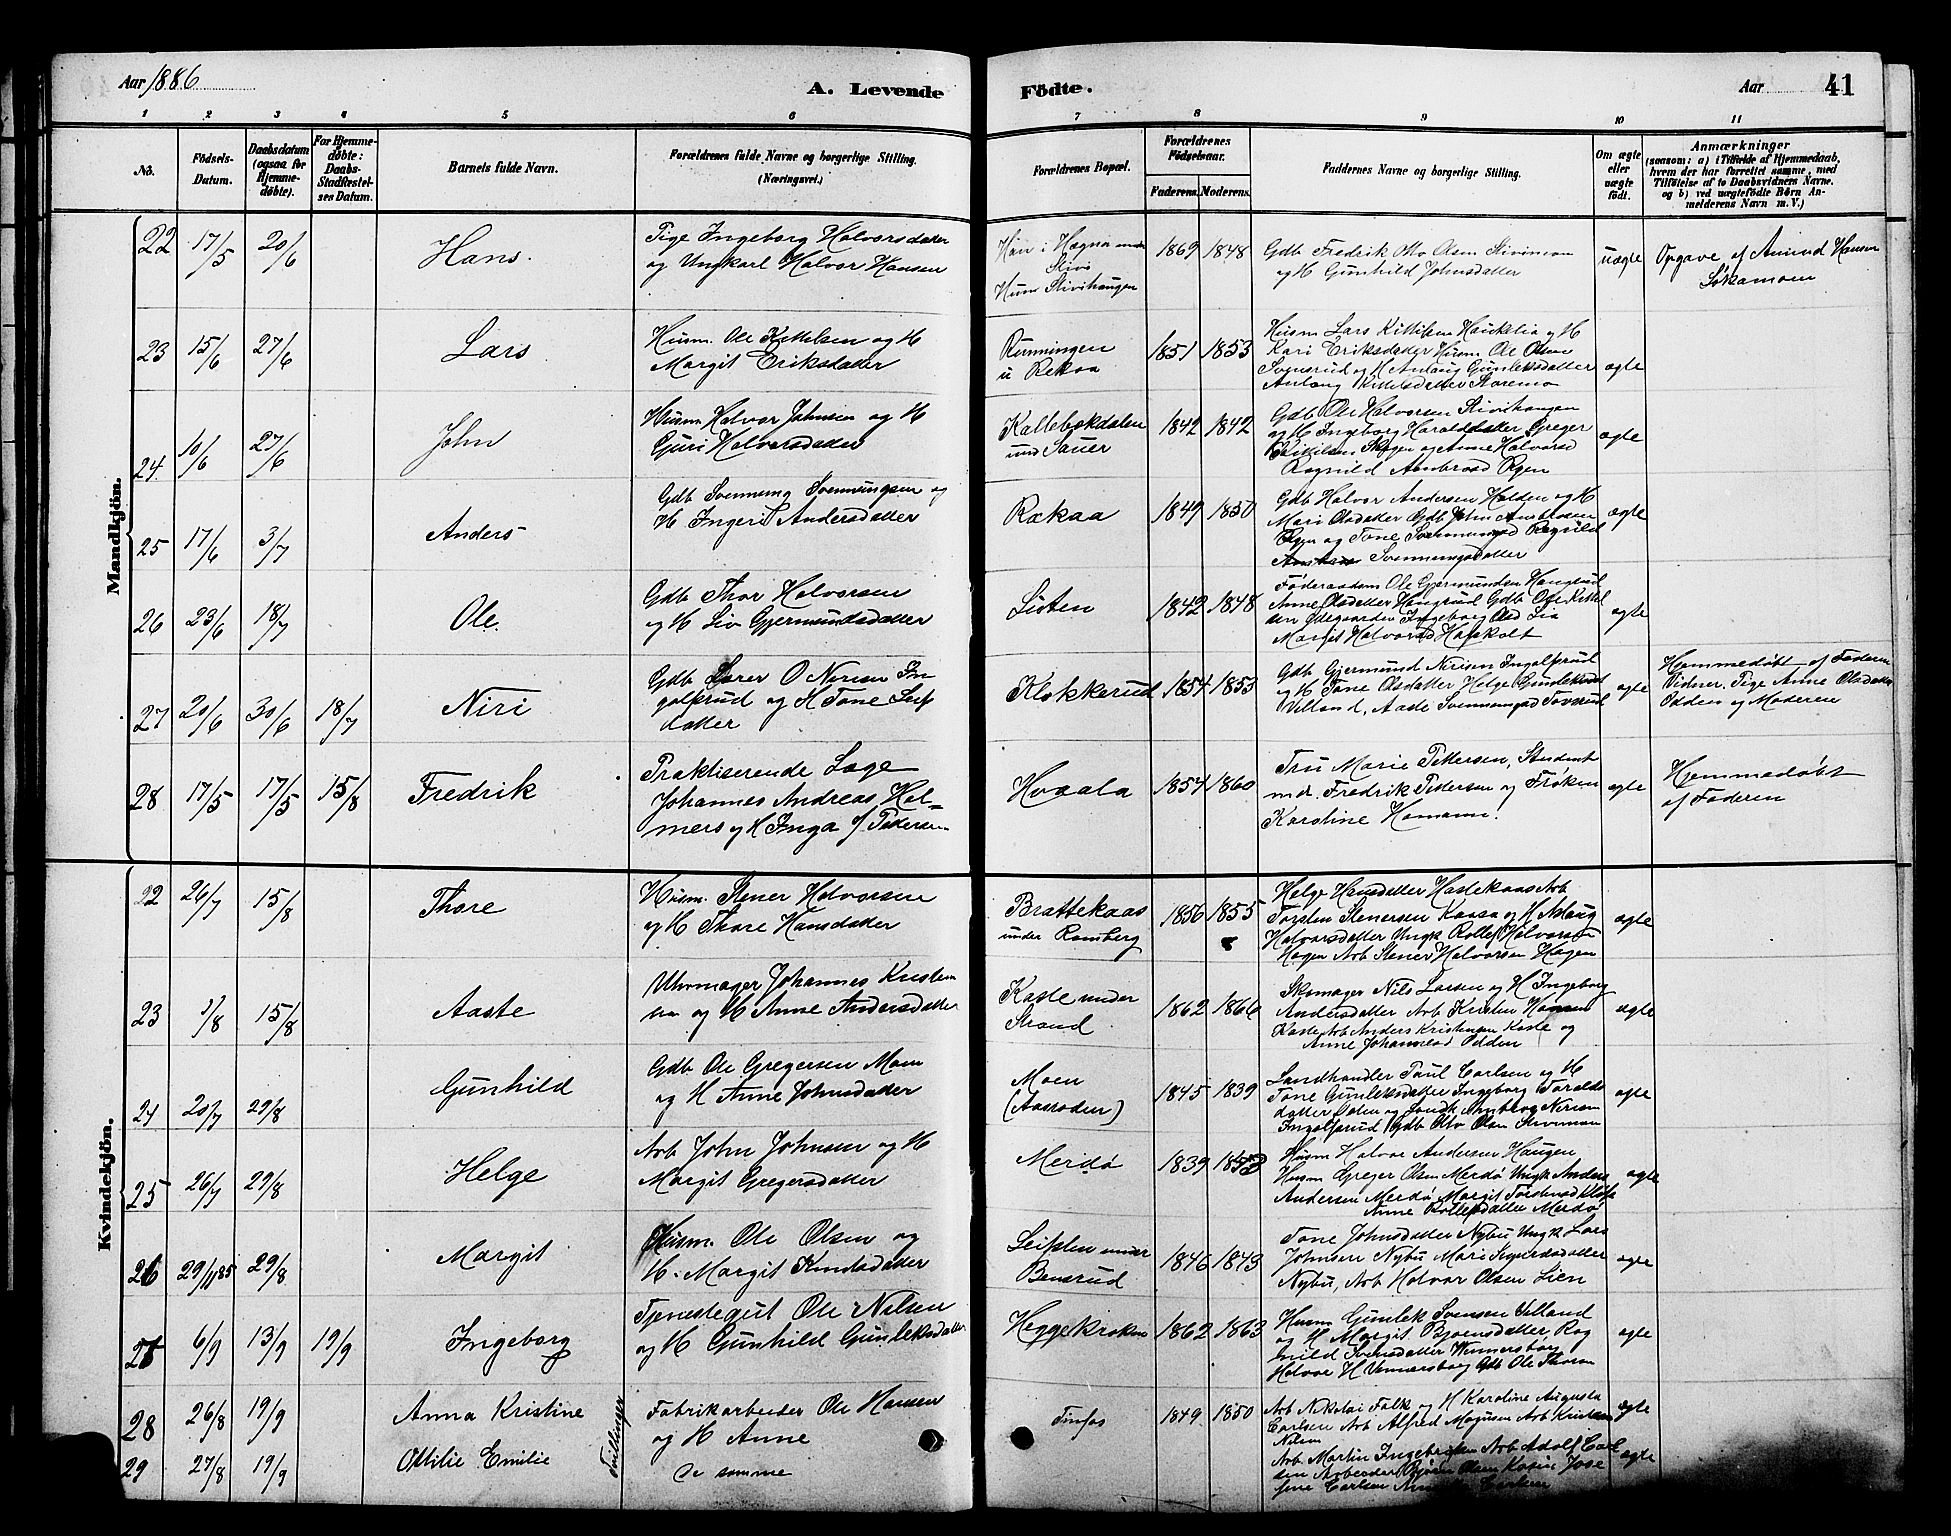 Aar 1886
A. Levende Födte.
Aar 41
1 2 3 4 5 6 7 8 9 10 11
No.
Födsels-Datum.
Daabsdatum (ogsaa for Hjemmedöbte).
For Hjemmedöbte: Daabs-Stadfæstelses Datum.
Barnets fulde Navn.
Forældrenes fulde Navne og borgerlige Stilling. (Næringsvei.)
Forældrenes Bopæl.
Forældrenes Födselsaar.
Faderens. Moderens.
Faddernes Navne og borgerlige Stilling.
Om ægte eller uægte födt.
Anmærkninger
(saasom: a) i Tilfælde af Hjemmedaab, hvem der har forrettet samme, med Tilföielse af to Daabsvidners Navne. og b) ved uægtefödte Börn Anmelderens Navn m. V.)
Mandkjön.
22 17/5 20/6 Hans.
Pige Ingeborg Halvorsdatter
og Ungkarl Halvor Hansen
1869 1848
Gdb Fredrik Otto Olsen Stivimoen
og H Gunhild Johnsdatter
uægte
Opgave af Amund Hansen
23 15/6 27/6 Lars
Husm. Ole Kittelsen og H
Margit Eriksdatter
Runningen
u Rekaa
1851 1853
Husm Lars Kittilsen Haukelia og H
Kari Eriksdatter Husm Ole Olsen
Sognerud og H Anlaug Gunleksdatter
Anlaug Kittelsdatter Storemo
ægte
24 10/6 27/6 John
Husm Halvor Johnsen og H
Guri Halvorsdatter
Kallebækdalen
und Sauer
1842 1842
Gdb Ole Halvorsen Stivihaugen
og H Ingeborg Haraldsdatter Greger
Kittilsen Skogen og Anne Halvorsd
Ragnild Ambrosd Rgen
ægte
25 17/6 3/7 Anders
Gdb Svennung Svennungsen og
H Ingeri Andersdatter
Rækaa
1849 1850
Gdb Halvor Andersen Holden og H
Mari Olsdatter Gdb John
og Tone Svennungsd Ragnild
Svennungsdatter
ægte
26 23/6 18/7 Ole
Gdb Thor Halvorsen
og H Liv Gjermundsdatter
Listen
1842 1848
Føderaadsm Ole Gjermundsen Haugrud
Anne Olsdatter Haugrud Gdb Ole Kittel
sen Ingeborg Olsd Lia
Margit Halvorsd
ægte
27 20/6 30/6 18/7 Niri
Gdb Lærer O Nirisen In
golfsrud og H Tone Leif
datter
Klokkerud
1854 1853
Gdb Gjermund Nirisen Ingolfsrud
og H Tone Olsdatter Helge Gunleksd
Villand, Aaste Svennungsd Tovsrud
ægte
Hjemmedøbt af Faderen
Vidner, Pige Anne Olsdatter
Odden og Moderen
28 17/5 17/5 15/8 Fredrik
Praktiserende Læge
Johannes Andreas Hol-
mers og H Inga f Pedersen
Hvaala
1854 1860
Fru Marie Pettersen, Student
Fredrik Pedersen og Frøken
Karoline Homann.
ægte
Hjemmedøbt
af Faderen
Kvindekjön.
22 26/7 15/8 Thore
Husm. Stener Halvorsen
og H Thore Hansdatter
Brattekaas
under Romberg
1856 1855
Helge Hansdatter Haatekaas Arb
Torsten Stenersen Kaasa og H Aslaug
Halvorsdatter Ungk Rollef Halvorsen
Hagen Arb Stener Halvorsen Hagen
ægte
23 1/8 15/8 Aaste
Uhrmager Johannes Kristen
sen og H Anne Andersdatter
Kaste under
Strand
1862 1866
Skomager Nils Larsen og H Ingeborg
Andersdatter Arb Kristen Hansen
Kaste Arb Anders Kristensen Kaste og
Anne Johannesd Odden
ægte
24 20/7 29/8 Gunhild
Gdb Ole Gregersen Moen
og H Anne Johnsdatter
Moen
1845 1839
Landhandler Paul Carlsen og H
Tone Gunleksdatter Ingeborg Toralds
datter Odden og Landk Amborg Nirisen
Ingolfsrud Gdb Otto Olsen Stivimoen
ægte
25 26/7 29/8 Helge
Arb John Johnsen og H
Margit Gregersdatter
Merdø
1839
Husm Halvor Andersen Haugen
Husm Greger Olsen Merdø Ungk Anders
Andersen Merdø Margit Torstensd
Anne Rollefsdatter Merdø
ægte
26 29/11 85 29/8 Margit
Husm. Ole Olsen og
H. Margit Knudsdatter
Leiflen under
Bensrud
1846 1843
Tone Johnsdatter Nybu Ungk Lars
Johnsen Nybu Mari Sigurdsdatter
Nybu, Arb Halvor Olsen Lien
ægte
27 6/9 13/9 19/9 Ingeborg
Tjenestegut Ole Nilsen
og H Gunhild Gunleksdatter
Heggekroken
1862 1863
Husm Gunlek Svensen Villand
og H Margit Bjørnsdatter, Rag
nild Svensdatter Vennersborg
Halvor H Vennersborg Gdb Ole Thorsen
ægte
28 26/8 19/9 Anna Kristine
Tvillinger
Fabrikarbeider Ole Hansen
og H Anne
Tinfos
1849 1850
Arb Nikolai Falk og H Karoline Augusta
Carlsen Arb Alfred Magnsen Arb Kristian
Nilsen
ægte
29 27/8 19/9 Ottilie Emilie
De samme
Arb Martin Ingebrigtsen Arb Adolf Carl
sen Arbeider Bjørn Olsen Kasin Jose
fine Carlsen
ægte